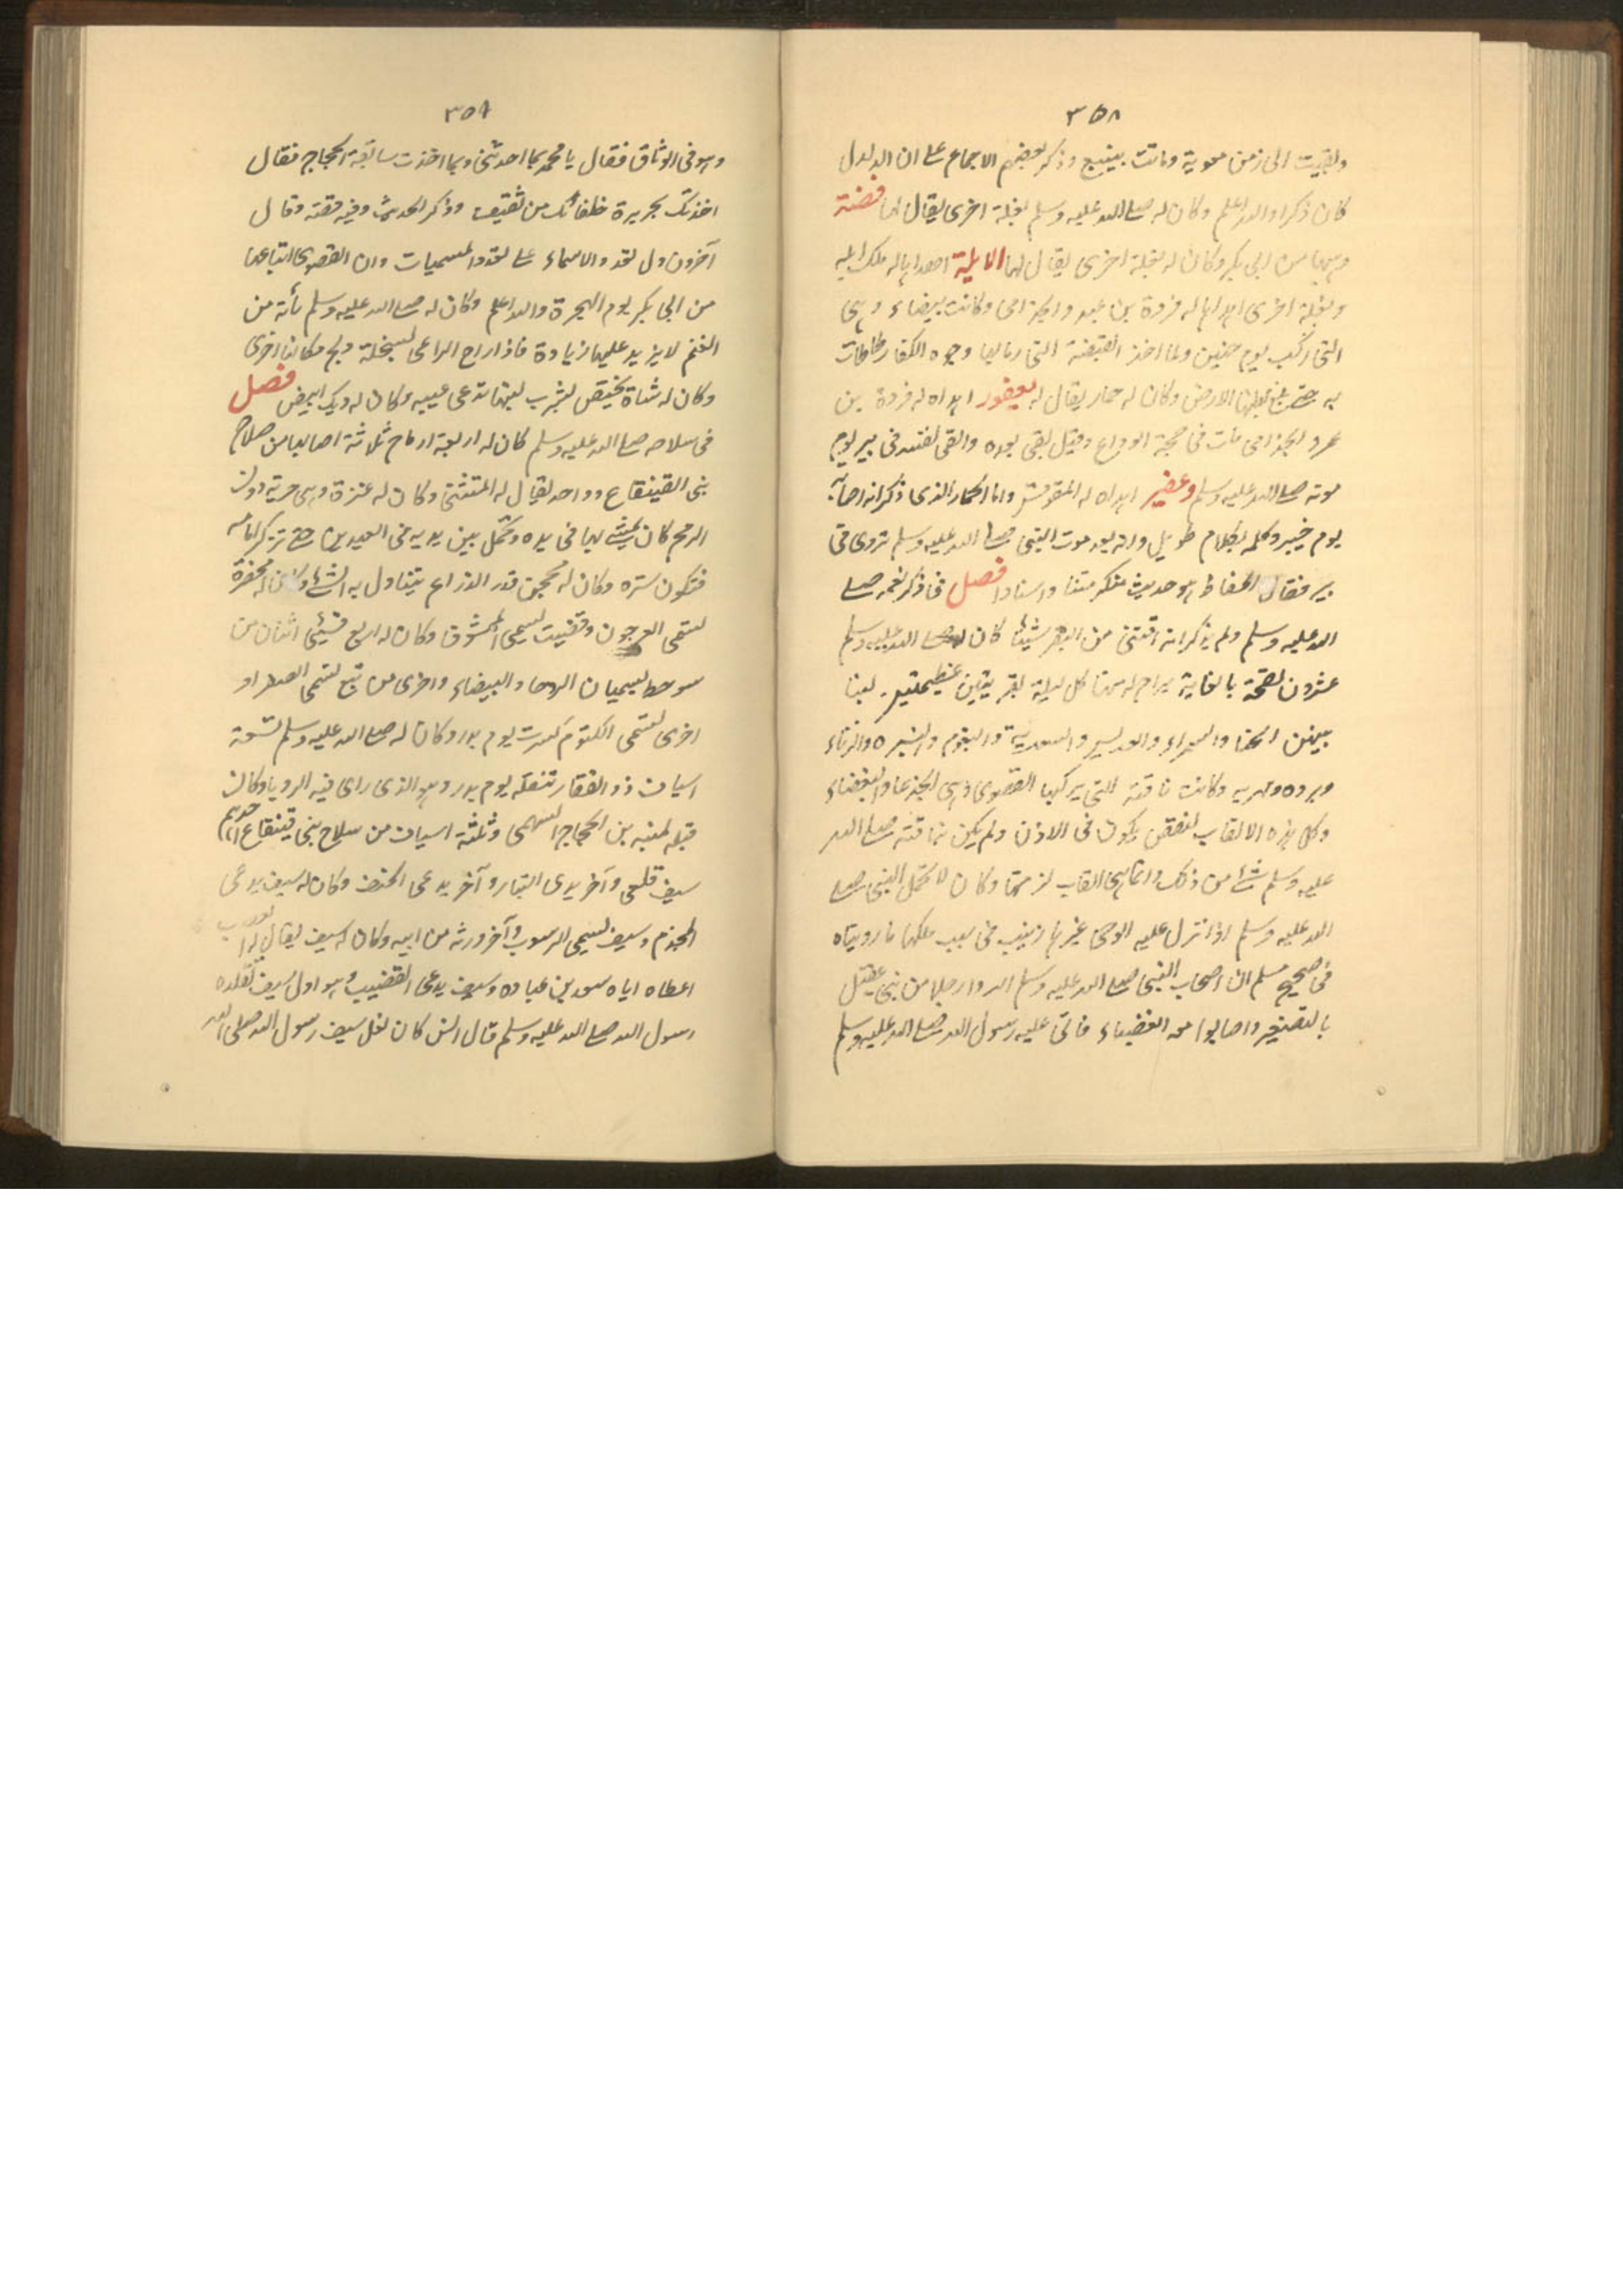 ٣٥٨
وبقيت الى زمن معوية وماتت بينبع وذكر بعضهم الاجماع على ان الدلدل
كان ذكرا والله اعلم وكان له صلى الله عليه وسلم بغلة اخرى يقال لها فضة
وهبها من ابى بكر وكان له بغلة اخرى يقال لها الايلية اهداها له ملك ايله
وبغلة اخرى اهداها له فروة بن عمرو الجذامى وكانت بيضاء وهى
التى ركب يوم حنين ولما اخذ القبضة التى رما بها وجوه الكفار طاطات
به حتى بلغ بطنها الارض وكان له حمار يقال له يعفور اهداه له فروة بن
عمرو الجذامى مات فى حجة الوداع وقيل بقى بعده والقى نفسه فى بير يوم
موته صلى الله عليه وسلم وعفير اهداه له المقوقس واما الحمار الذى ذكر انه اصابه
يوم خيبر وكلمه بكلام طويل وانه بعد موت النبى صلى الله عليه وسلم تردى فى
بير فقال الحفاظ هو حديث منكر متنا واسنادا فصل فى ذكر نعمه صلى
الله عليه وسلم ولم يذكر انه اقتنى من البقر شيئا كان له صلى الله عليه وسلم
عشرون لقحة بالغابة يراح له منها كل ليلة بقربتين عظيمتين لبنا
بينهن الحنا والسمراء والعريس والسعدية والبغوم واليسيره والرباء
وبرده ومهريه وكانت ناقته التى يركبها القصوى وهى الجدعا والعضباء
وكل هذه الالقاب لنقص يكون فى الاذن ولم يكن بناقته صلى الله
عليه وسلم شئ من ذلك وانما هى القاب لزمتها وكان لا تحمل النبى صلى
الله عليه وسلم اذا نزل عليه الوحى غيرها وفى سبب ملكها ما رويناه
فى صحيح مسلم ان اصحاب النبى صلى الله عليه وسلم اسروا رجلا من بنى عقيل
بالتصغير واصابوا معه العضباء فاتى عليه رسول الله صلى الله عليه وسلم
٣٥٩
وهو فى الوثاق فقال يا محمد بما اخذتنى وبما اخذت سابقة الحجاج فقال
اخذتك بجريرة حلفائك من ثقيف وذكر الحديث وفيه قصة وقال
آخرون دل تعدد الاسماء على تعدد المسميات وان القصوى ابتاعها
من ابى بكر يوم الهجرة والله اعلم وكان له صلى الله عليه وسلم مأته من
الغنم لا يزيد عليها زيادة فاذا اراح الراعى لسخلة ذبح مكانها اخرى
وكان له شاة يختص بشرب لبنها تدعى غيبه وكان له ديك ابيض فصل
فى سلاحه صلى الله عليه وسلم كان له اربعة ارماح ثلاثة اصابها من سلاح
بنى القينقاع وواحد يقال له المتثنى وكان له عنزة وهى حربة دون
الرمح كان يمشى بها فى يده وتحمل بين يديه فى العيدين حتى تركز امامه
فتكون سترة وكان له محجن قدر الذراع يتناول به الشئ وكان له مخصرة
تسمى العرجون وقضيب يسمى الممشوق وكان له اربع قسى اثنان من
شوحط يسميان الروحا والبيضاء واخرى من نبع تسمى الصفراء و
اخرى تسمى الكتوم كسرت يوم بدر وكان له صلى الله عليه وسلم تسعة
اسياف ذو الفقار تنفله يوم بدر وهو الذى راى فيه الرويا وكان
قبله لمنبه بن الحجاج السهمى وثلثة اسياف من سلاح بنى قينقاع
سيف قلعى وآخر يدعى البتار وآخر يدعى الحتف وكان له سيف يدعى
المخذم وسيف يسمى الرسوب وآخر ورثه من ابيه وكان له سيف يقال له العضب
اعطاه اياه سعد بن عباده وسيف يدعى القضيب وهو اول سيف تقلده
رسول الله صلى الله عليه وسلم قال انس كان نعل سيف رسول الله صلى الله